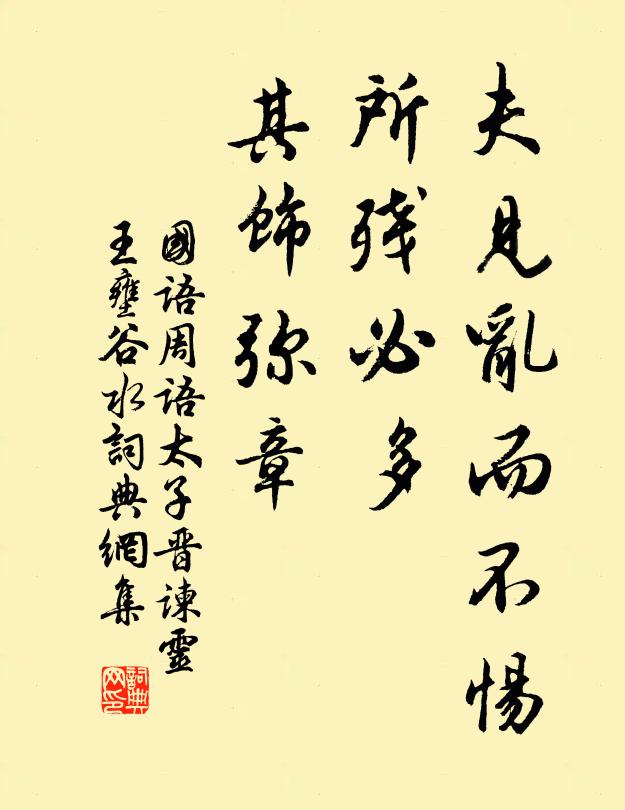 夫見亂而不惕
所殘必多
其飾弥章
國語周語太子晉諫靈
王壅谷水詞典網集
詞典
网印